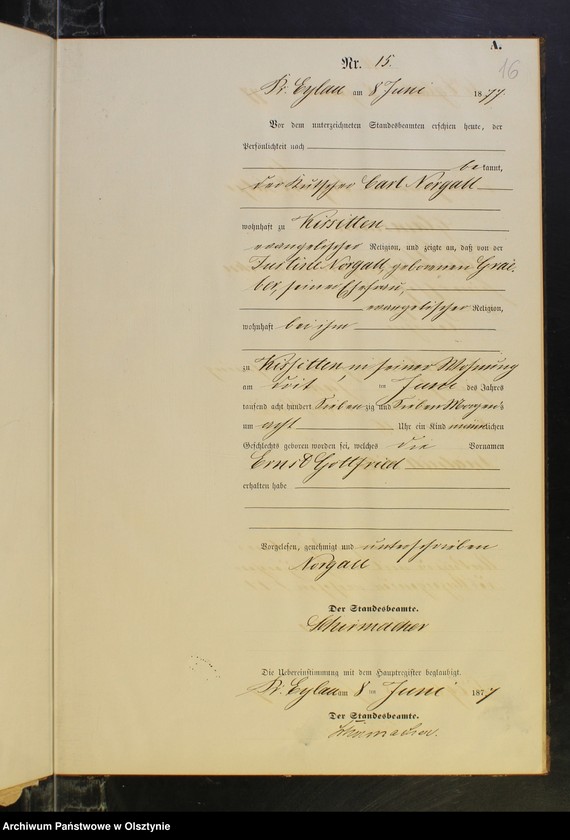 A.
16
Nr. 15.
Pr. Eylau am 8 Juni 1877.
Vor dem unterzeichneten Standesbeamten erschien heute, der
Persönlichkeit nach
bekannt,
der Kutscher Carl Norgall
wohnhaft zu Kissitten
evangelischer Religion, und zeigte an, daß von der
Justine Norgall, gebornen
seiner Ehefrau,
evangelischer Religion,
wohnhaft bei ihm
zu Kissitten in seiner Wohnung
am ten Juni des Jahres
tausend acht hundert siebenzig und sieben Morgens
um acht Uhr ein Kind männlichen
Geschlechts geboren worden sei, welches die Vornamen
Ernst Gottfried
erhalten habe
Vorgelesen, genehmigt und unterschrieben
Norgall
Der Standesbeamte.
Schirmacher
Die Uebereinstimmung mit dem Hauptregister beglaubigt.
Pr. Eylau am 8 ten Juni 1877
Der Standesbeamte.
Schirmacher.
Archiwum Państwowe w Olsztynie